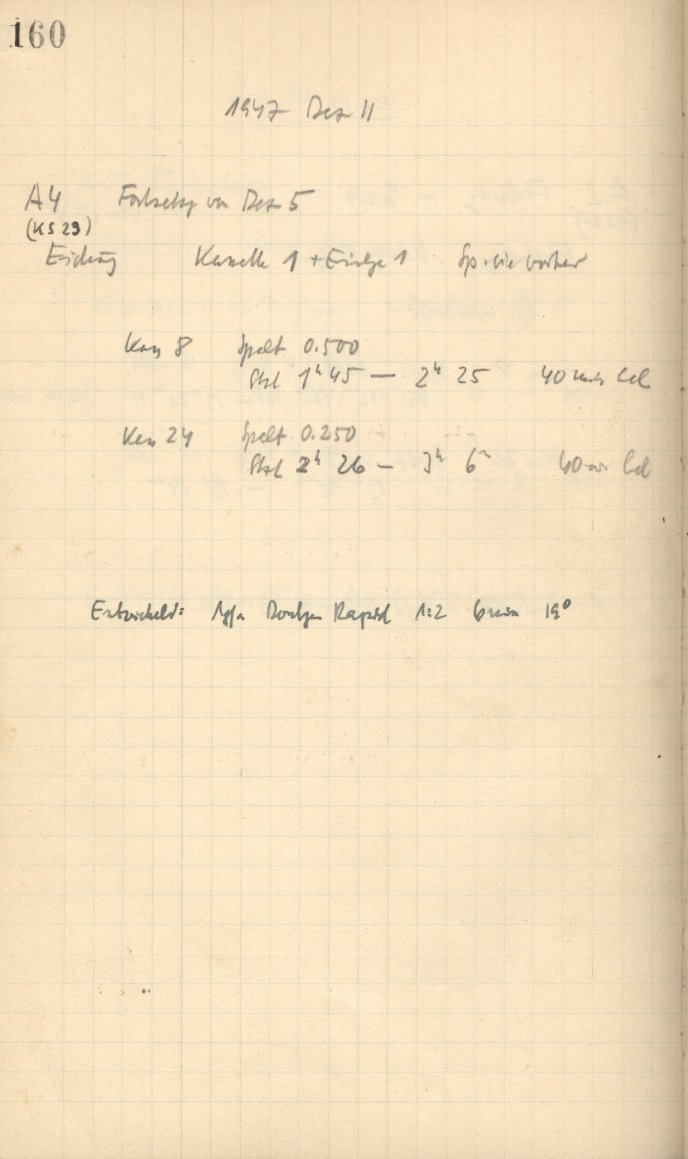 160
1947 Dez 11
A4 Fortsetzg von Dez 5
(KS 29)
Eichung Kassette 1 + Einlge 1 Sp. wie vorher
Kass 8 Spalt 0.500
1ʰ 45 — 2ʰ 25 40 min bel
Kass 24 Spalt 0.250
2ʰ 26 — 3ʰ 6ᵐ 40 min bel
Entwickelt: Agfa Rapid 1:2 6 min 19°